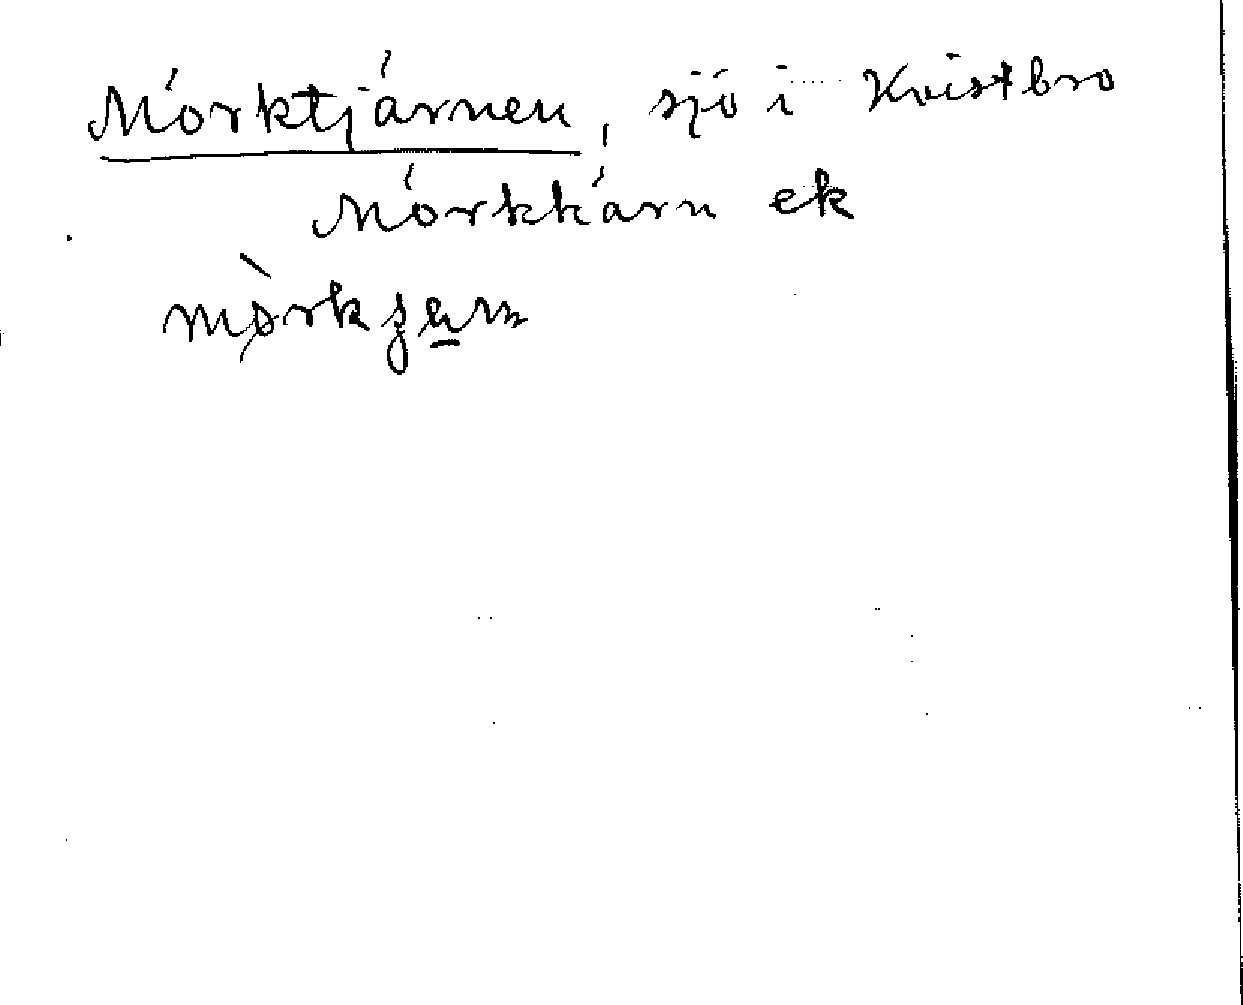 Mörktjärnen, sjö i Kvistbro
Mörkkärn ek